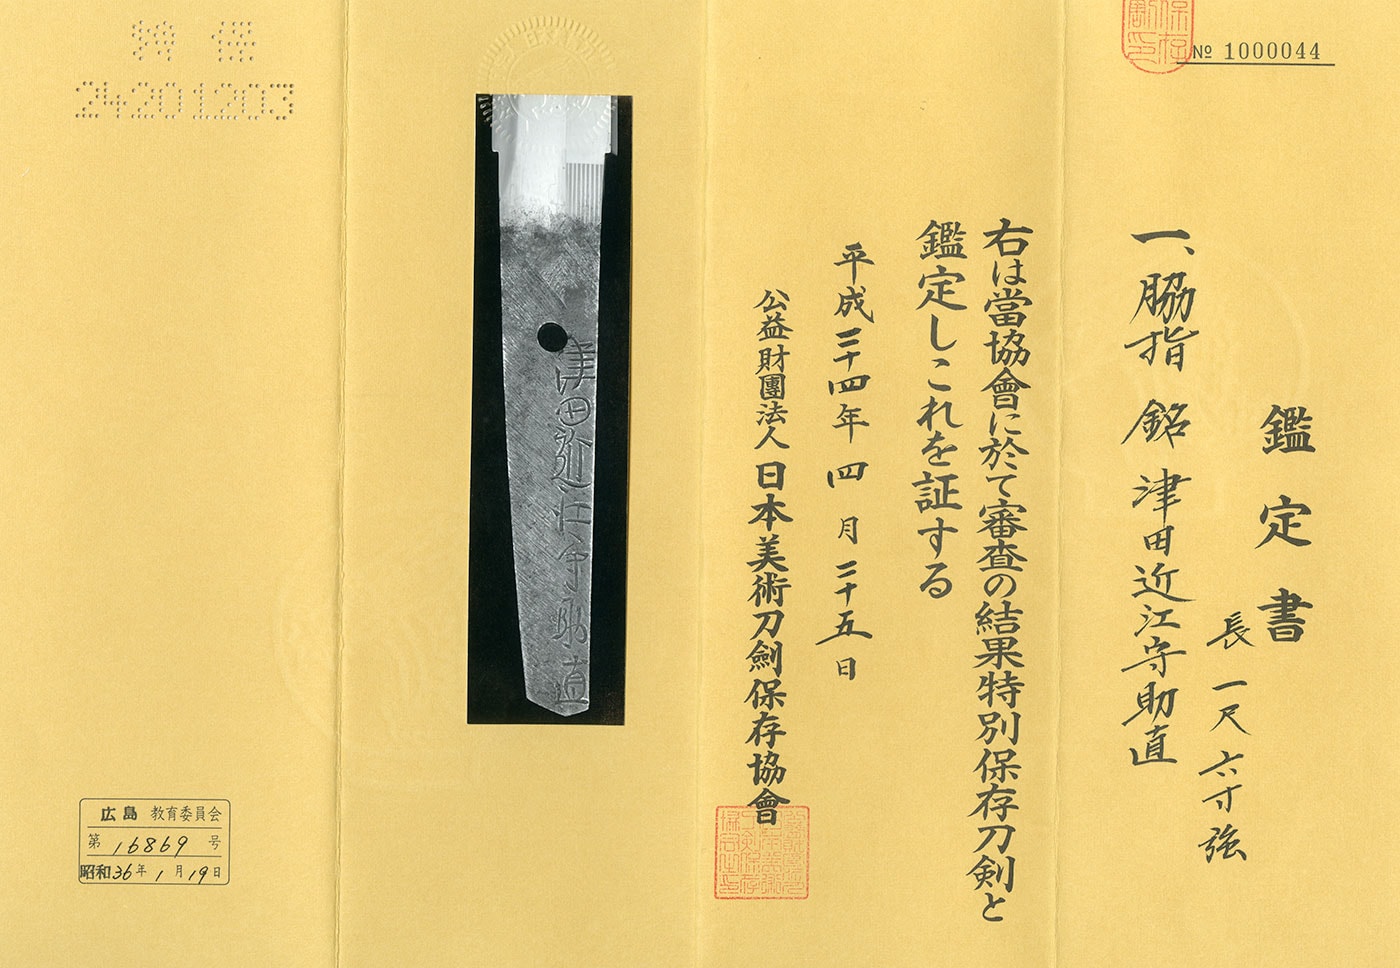 № 1000044
鑑定書
長 一尺六寸強
一、脇指 銘 津田近江守助直
右は當協會に於て審査の結果特別保存刀剣と
鑑定しこれを証する
平成二十四年四月二十五日
公益財團法人 日本美術刀劍保存協會
津田近江守助直
特保
24201203
広島 教育委員会
第 16869 号
昭和36年1月19日